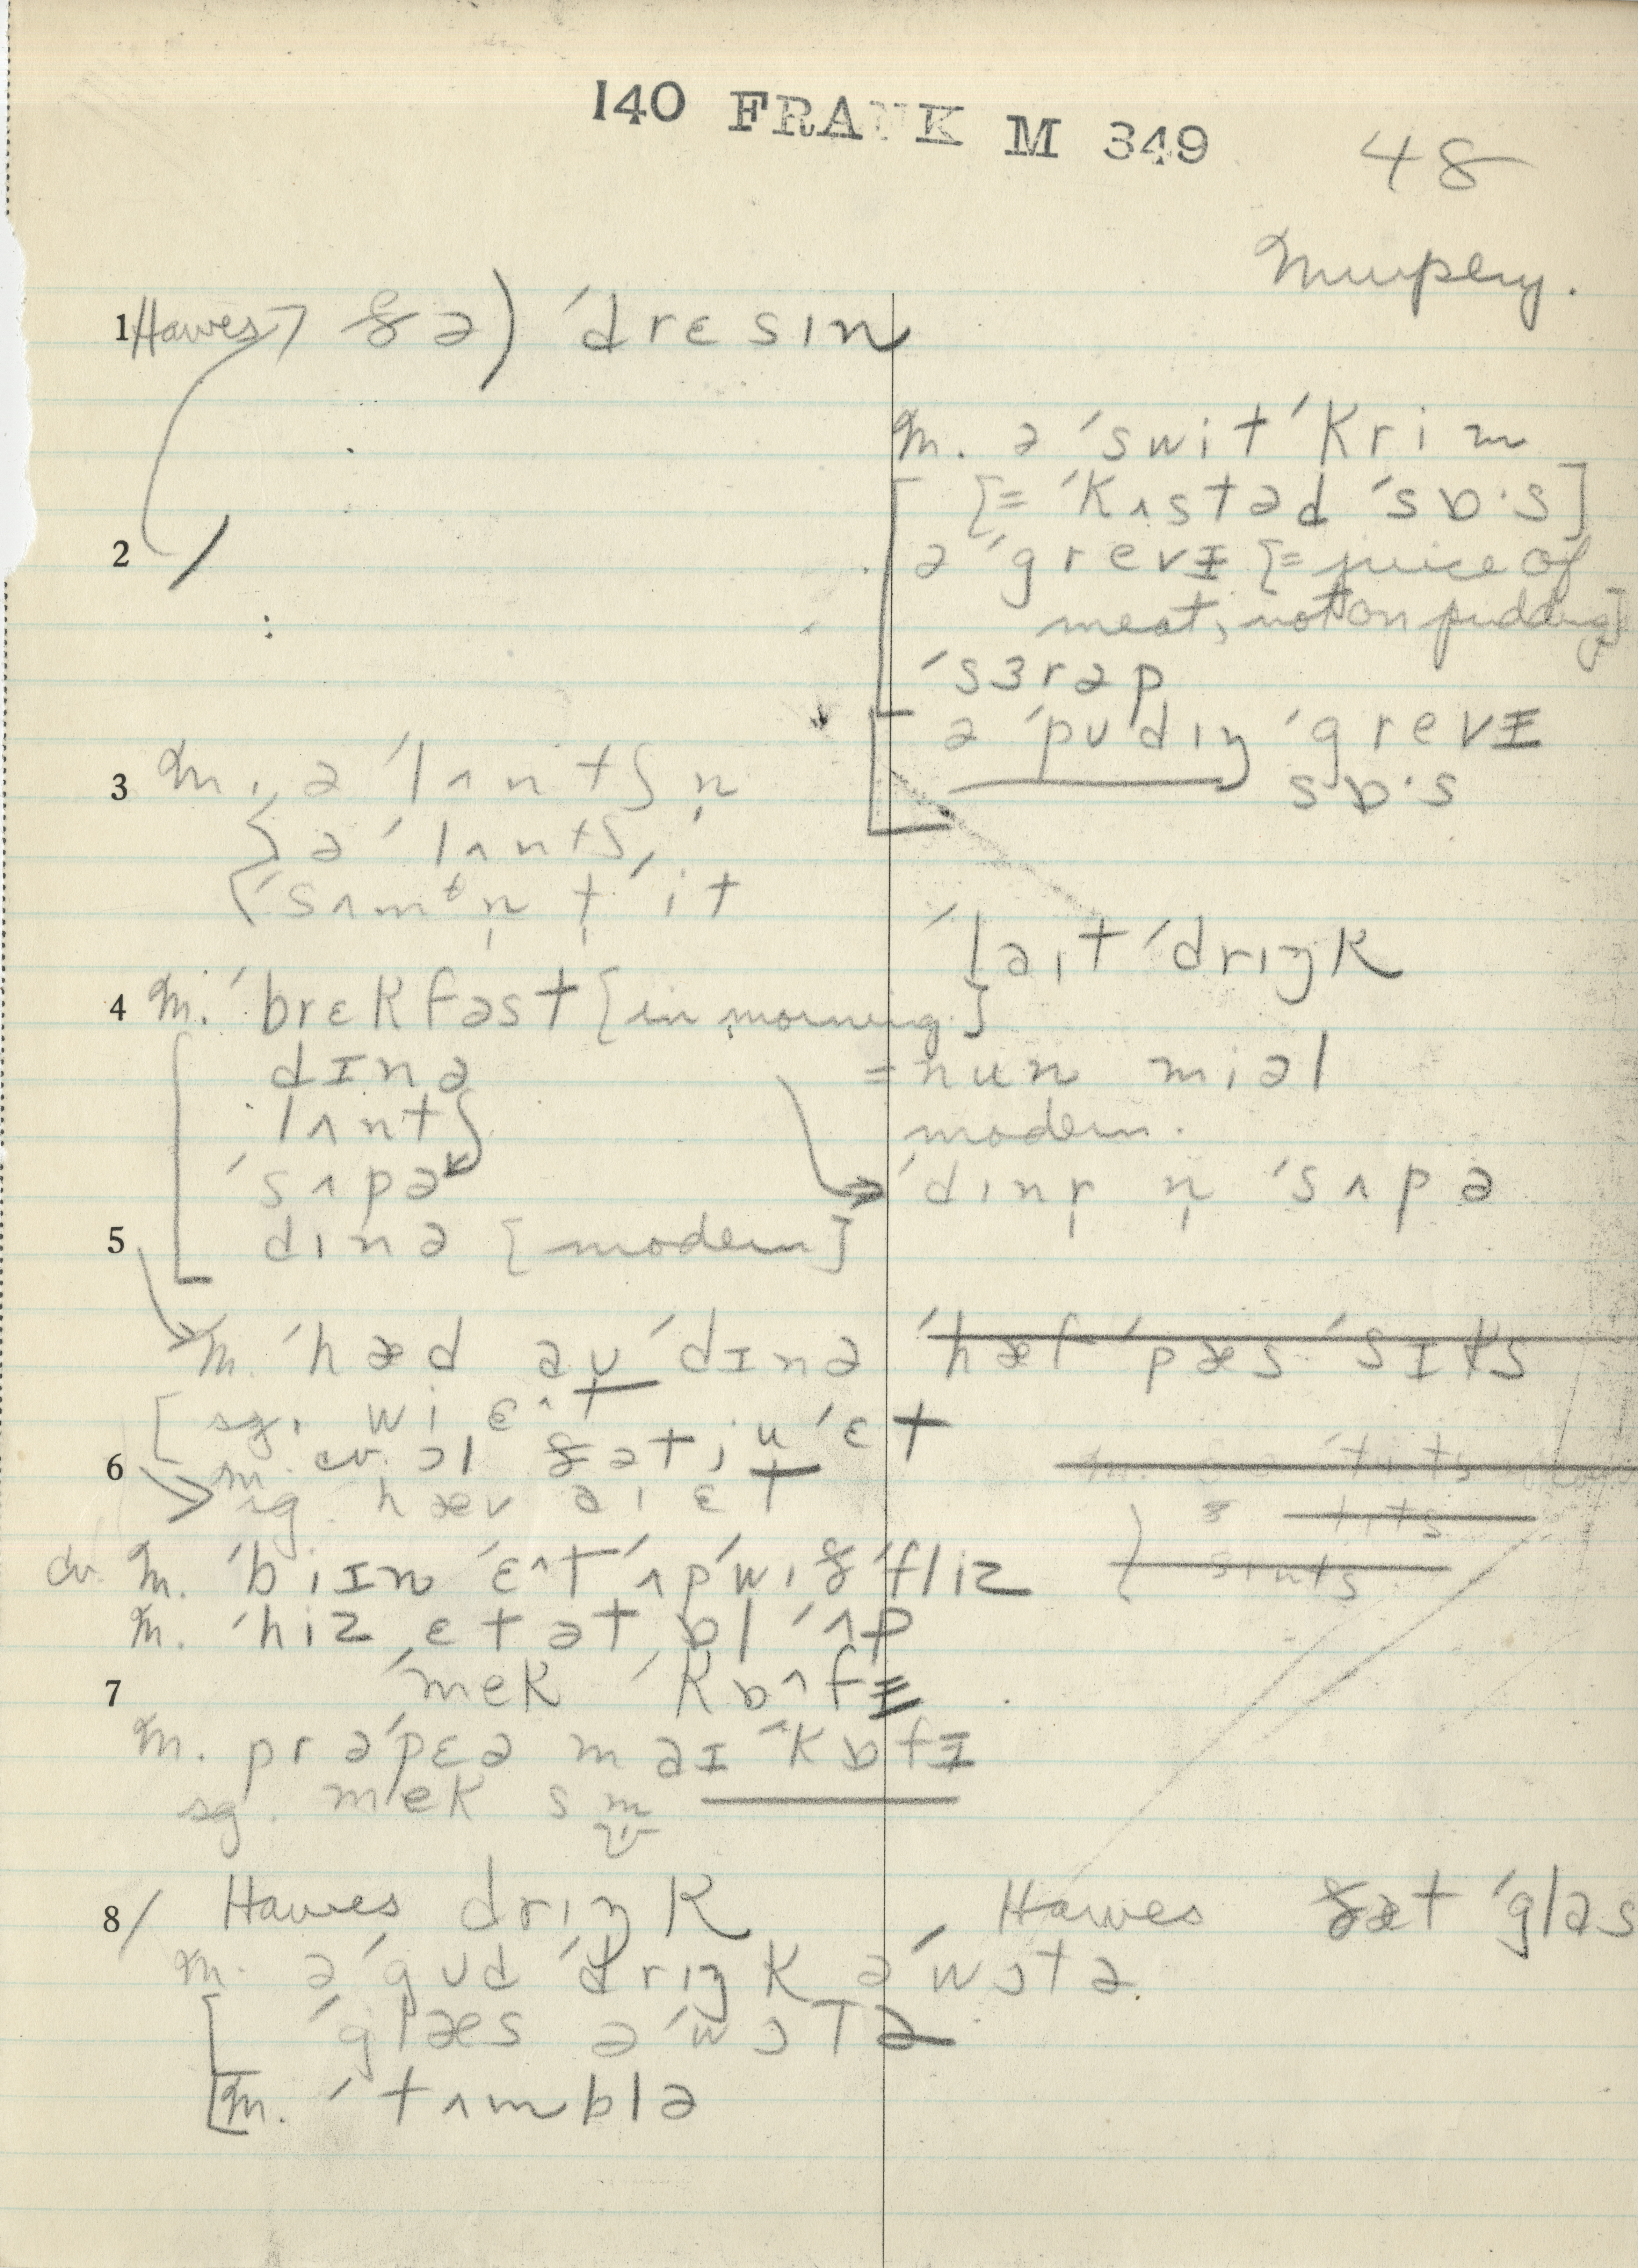 140 FRANK M 349
48
Murphy.
1 Hawes ðə) ˈdrɛsɪn
m. ə ˈswit ˈkrim
[= ˈkʌstəd ˈsɒ·s]
2 / ə ˈgrevɪ [= juice of
meat, not on pudding]
ˈsɜrəp
ə ˈpʊdɪŋ ˈgrevɪ
sɒ·s
3 m. ə ˈlʌntʃ n̩
ə ˈlʌntʃ
ˈsʌmᵗn̩ t̩ ˈit
ˈlaɪt ˈdrɪŋk
4 m. ˈbrɛkfəst [in morning]
dɪnə = nun miəl
lʌntʃ modern.
ˈsʌpə ˈdɪnr̩ n̩ ˈsʌpə
5 dɪnə [modern]
m. ˈhæd aʊ ˈdɪnə ˈhæf ˈpæs ˈsɪks
sg. wi ɛ^t
6 m. cv. ɔl ðət ju ˈɛt
sg. hæv aɪ ɛt
cv. m. ˈbiɪn ˈɛ^t ˈʌp ˈwɪð ˈfliz
m. ˈhiz et ət bl ˈʌp
7 ˈmek ˈkɒ^fɪ
m. prəˈpɛə maɪ ˈkɒfɪ
sg. mek sm̩
8/ Hawes drɪŋk Hawes ðæt ˈglas
m. ə ˈgʊd ˈdrɪŋk ə ˈwɔtə
ˈglæs ə ˈwɔtə
m. ˈtʌmblə